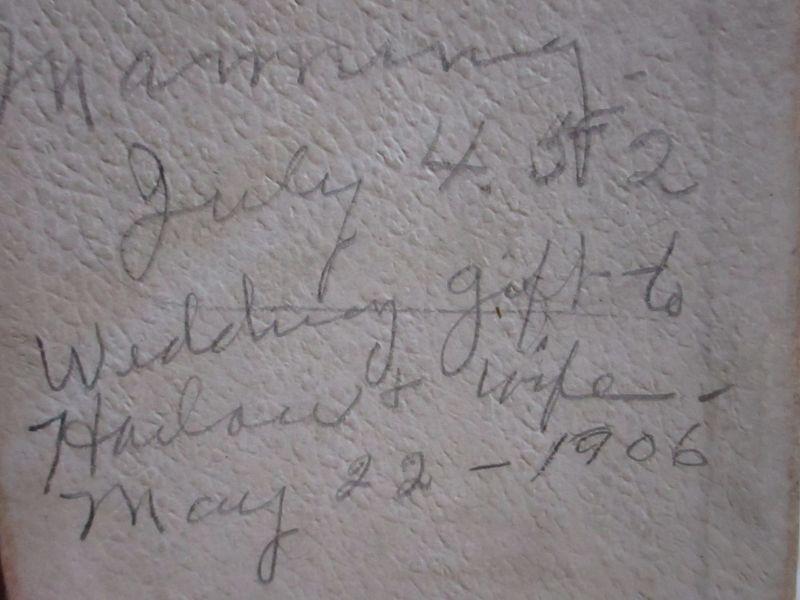 Manning -
July 4. 52
Wedding gift to
Harlow + wife -
May 22 - 1906